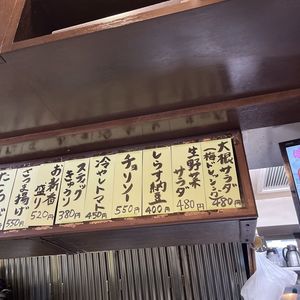 大根サラダ
(梅ドレッシング)
480
生野菜サラダ
480円
しらす納豆
400円
チョリソー
550円
冷やしトマト
450円
スティックきゅうり
380円
お新香盛り
520円
さつま揚げ
550円